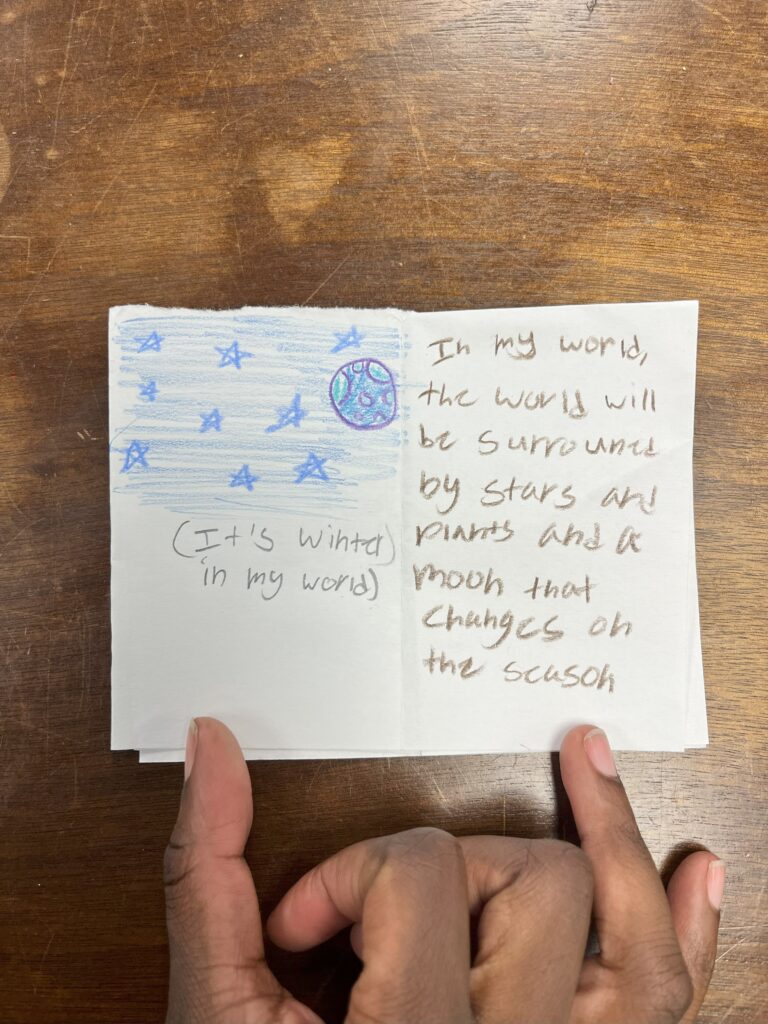 (It's winter)
in my world)
In my world,
the world will
be surround
by stars and
plants and a
moon that
changes on
the season